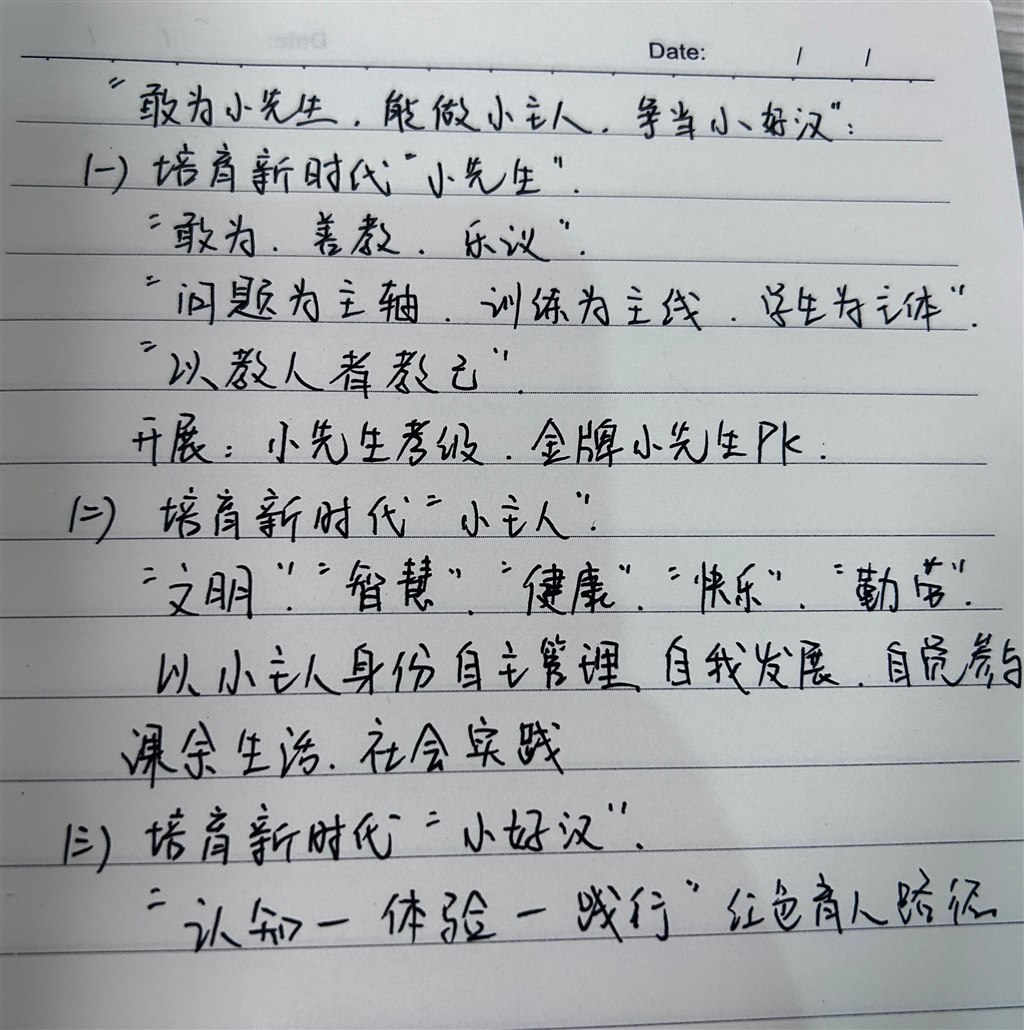 Date: / /
"敢为小先生，能做小主人，争当小好汉"：
(一) 培育新时代"小先生".
"敢为、善教、乐议".
"问题为主轴、训练为主线、学生为主体".
"以教人者教己".
开展：小先生考级、金牌小先生PK.
(二) 培育新时代"小主人".
"文明"、"智慧"、"健康"、"快乐"、"勤劳".
以小主人身份自主管理、自我发展、自觉参与
课余生活、社会实践
(三) 培育新时代"小好汉".
"认知一体验一践行"红色育人路径